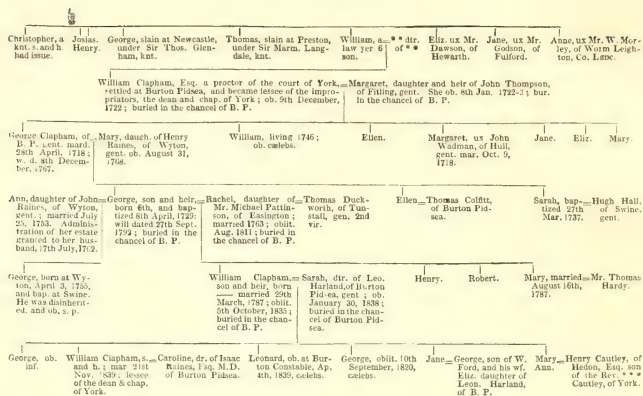 Christopher, a
knt. s. and h.
had issue.
Josias.
Henry.
George, slain at Newcastle,
under Sir Thos. Glen-
ham, knt.
Thomas, slain at Preston,
under Sir Marm. Lang-
dale, knt.
William, a=* * dtr.
lawyer 6 of * *
son.
Eliz. ux Mr.
Dawson, of
Howarth.
Jane, ux Mr.
Godson, of
Fulford.
Anne, ux Mr. W. Mor-
ley, of Worm Leigh-
ton, Co. Lanc.
William Clapham, Esq. a proctor of the court of York,
settled at Burton Pidsea, and became lessee of the impro-
priators, the dean and chap. of York; ob. 9th December,
1722; buried in the chancel of B. P.
=Margaret, daughter and heir of John Thompson,
of Fitling, gent. She ob. 8th Jan. 1722-3; bur.
in the chancel of B. P.
George Clapham, of
B. P. gent. mard.
28th April, 1718;
w. d. 8th Decem-
ber, 1767.
=Mary, daugh. of Henry
Raines, of Wyton,
gent. ob. August 31,
1768.
William, living 1746;
ob. cælebs.
Ellen.
Margaret, ux John
Wadman, of Hull,
gent. mar. Oct. 9,
1718.
Jane.
Eliz.
Mary.
Ann, daughter of John
Raines, of Wyton,
gent.; married July
25, 1753. Adminis-
tration of her estate
granted to her hus-
band, 17th July, 1762.
=George, son and heir,
born 6th, and bap-
tized 8th April, 1729;
will dated 27th Sept.
1792; buried in the
chancel of B. P.
=Rachel, daughter of
Mr. Michael Pattin-
son, of Easington;
married 1763; obiit.
Aug. 1811; buried in
the chancel of B. P.
=Thomas Duck-
worth, of Tun-
stall, gen. 2nd
vir.
Ellen=Thomas Colfitt,
of Burton Pid-
sea.
Sarah, bap-
tized 27th
Mar. 1737.
=Hugh Hall,
of Swine,
gent.
George, born at Wy-
ton, April 3, 1755,
and bap. at Swine.
He was disinherit-
ed, and ob. s. p.
William Clapham,
son and heir, born
—— married 29th
March, 1787; obiit.
5th October, 1835;
buried in the chan-
cel of B. P.
=Sarah, dtr. of Leo.
Harland, of Burton
Pid-ea, gent; ob.
January 30, 1838;
buried in the chan-
cel of Burton Pid-
sea.
Henry.
Robert.
Mary, married
August 16th,
1787.
=Mr. Thomas
Hardy.
George, ob.
inf.
William Clapham, s.
and h.; mar 21st
Nov. 1839; lessee
of the dean & chap.
of York.
=Caroline, dr. of Isaac
Raines, Esq. M.D.
of Burton Pidsea.
Leonard, ob. at Bur-
ton Constable, Ap.
4th, 1839, cælebs.
George, obiit. 10th
September, 1820,
cælebs.
Jane=George, son of W.
Ford, and his wf.
Eliz. daughter of
Leon. Harland,
of B. P.
Mary
Ann.
=Henry Cautley, of
Hedon, Esq. son
of the Rev. * * *
Cautley, of York.